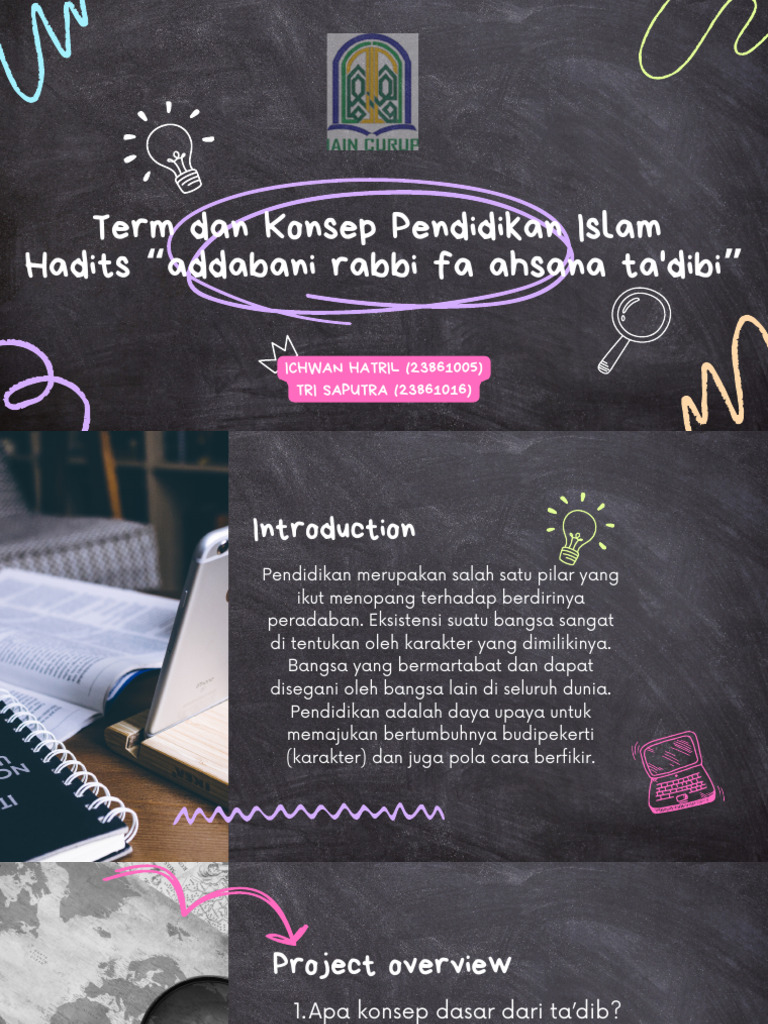 IAIN CURUP
Term dan Konsep Pendidikan Islam
Hadits “addabani rabbi fa ahsana ta'dibi”
ICHWAN HATRIL (23861005)
TRI SAPUTRA (23861016)
Introduction
Pendidikan merupakan salah satu pilar yang
ikut menopang terhadap berdirinya
peradaban. Eksistensi suatu bangsa sangat
di tentukan oleh karakter yang dimilikinya.
Bangsa yang bermartabat dan dapat
disegani oleh bangsa lain di seluruh dunia.
Pendidikan adalah daya upaya untuk
memajukan bertumbuhnya budipekerti
(karakter) dan juga pola cara berfikir.
Project overview
1.Apa konsep dasar dari ta’dib?